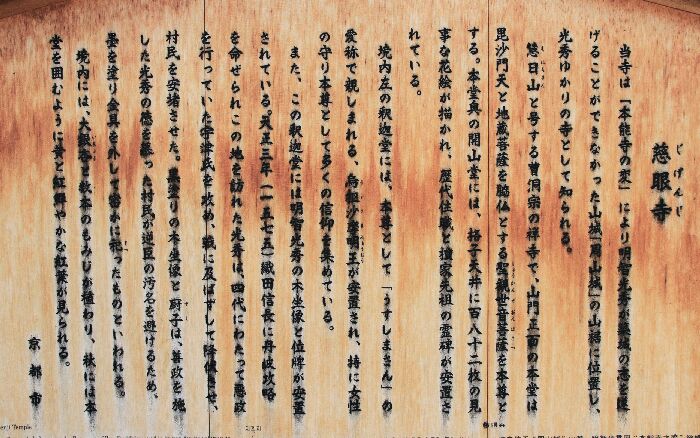 じげんじ
慈眼寺
当寺は「本能寺の変」により明智光秀が築城の志を遂
げることができなかった山城「周山城」の山裾に位置し、
光秀ゆかりの寺として知られる。
慈日山と号する曹洞宗の禅寺で、山門正面の本堂は
毘沙門天と地蔵菩薩を脇仏とする聖観世音菩薩を本尊と
する。本堂奥の開山堂には、格子天井に百八十二枚の見
事な花絵が描かれ、歴代住職と檀家先祖の霊碑が安置さ
れている。
境内左の釈迦堂には、本尊として「うすしまさん」の
愛称で親しまれる、烏枢沙摩明王が安置され、特に女性
の守り本尊として多くの信仰を集めている。
また、この釈迦堂には明智光秀の木坐像と位牌が安置
されている。天正三年(一五七五)織田信長に丹波攻略
を命ぜられこの地を訪れた光秀は、四代にわたって悪政
を行っていた宇津氏を攻め、戦に及ばずして降伏させ、
村民を安堵させた。墨塗りの木坐像と厨子は、善政を施
した光秀の徳を慕った村民が逆臣の汚名を避けるため、
墨を塗り金具を外して密かに祀ったものといわれる。
境内には、大銀杏と数本のもみじが植わり、秋には本
堂を囲むように黄と紅鮮やかな紅葉が見られる。
京都市
Temple